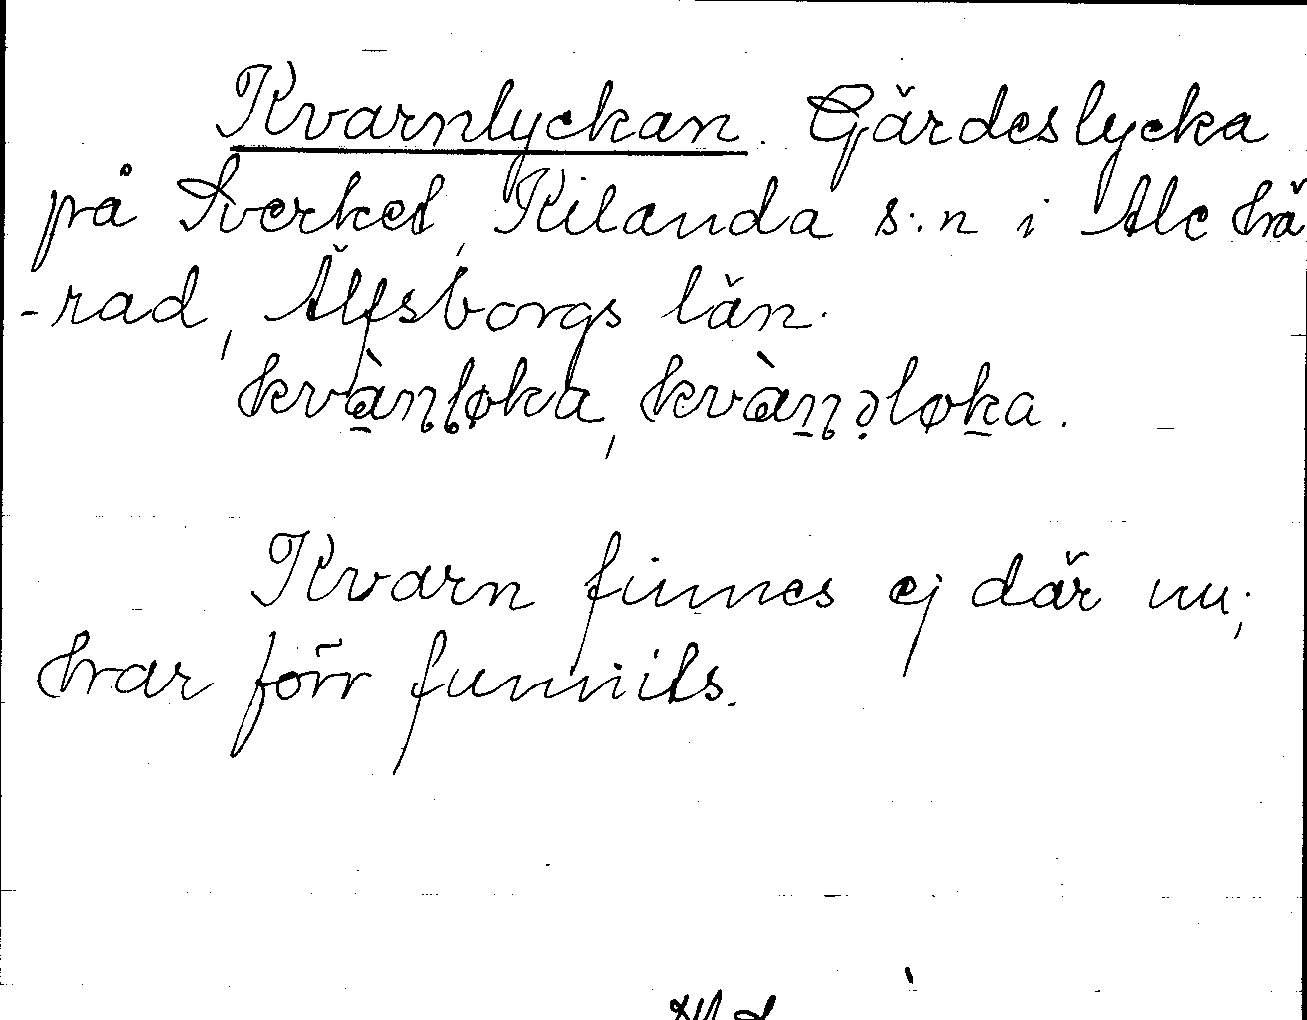 Kvarnlyckan. Gärdeslycka
på Sverket, Kilanda s:n i Ale hä
-rad, Älfsborgs län.
kvànɭøka, kvànəløka.
Kvarn finnes ej där nu;
har förr funnits.